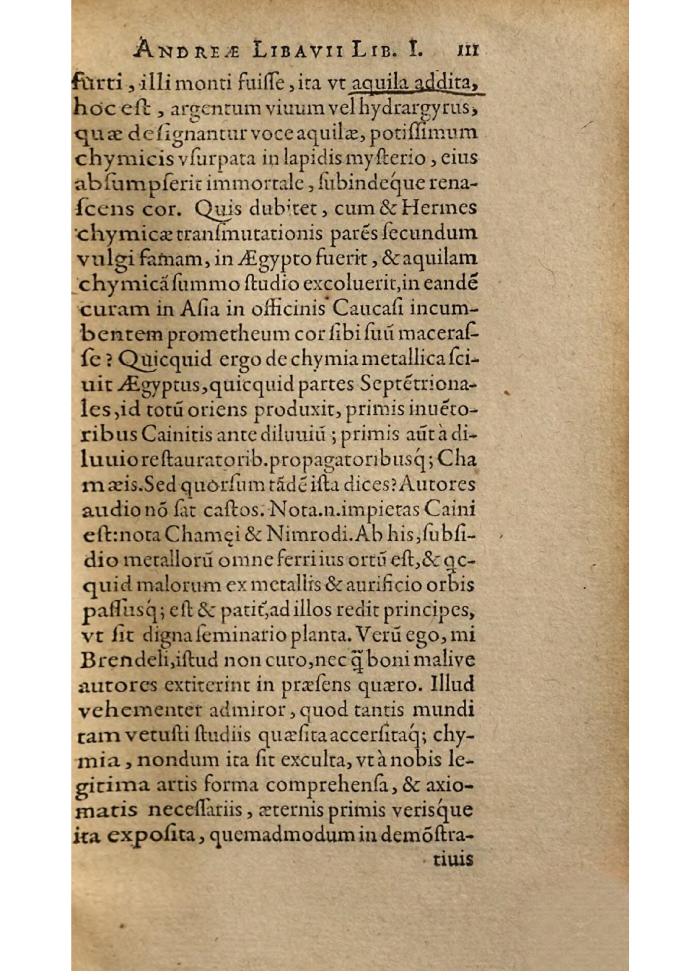 ANDREÆ LIBAVII LIB. I. 111
furti, illi monti fuiſſe, ita vt aquila addita,
hoc eſt, argentum viuum vel hydrargyrus,
quæ deſignantur voce aquilæ, potiſſimum
chymicis vſurpata in lapidis myſterio, eius
abſumpſerit immortale, ſubindéque rena-
ſcens cor. Quis dubitet, cum & Hermes
chymicæ tranſmutationis parẽs ſecundum
vulgi famam, in Ægypto fuerit, & aquilam
chymicã ſummo ſtudio excoluerit, in eandẽ
curam in Aſia in officinis Caucaſi incum-
bentem prometheum cor ſibi ſuũ maceraſ-
ſe? Quicquid ergo de chymia metallica ſci-
uit Ægyptus, quicquid partes Septẽtriona-
les, id totũ oriens produxit, primis inuẽto-
ribus Cainitis ante diluuiũ; primis aũt à di-
luuio reſtauratorib. propagatoribusq́; Cha
mæis. Sed quorſum tãdẽ iſta dices? Autores
audio nõ ſat caſtos. Nota.n.impietas Caini
eſt: nota Chamęi & Nimrodi. Ab his, ſubſi-
dio metallorũ omne ferri ius ortũ eſt, & qc-
quid malorum ex metallis & aurificio orbis
paſſusq́; eſt & patit́, ad illos redit principes,
vt ſit digna ſeminario planta. Verũ ego, mi
Brendeli, iſtud non curo, nec q̃ boni malive
autores extiterint in præſens quæro. Illud
vehementer admiror, quod tantis mundi
tam vetuſti ſtudiis quæſita accerſitaq́; chy-
mia, nondum ita ſit exculta, vt à nobis le-
gitima artis forma comprehenſa, & axio-
matis neceſſariis, æternis primis verisque
ita expoſita, quemadmodum in demõſtra-
tiuis